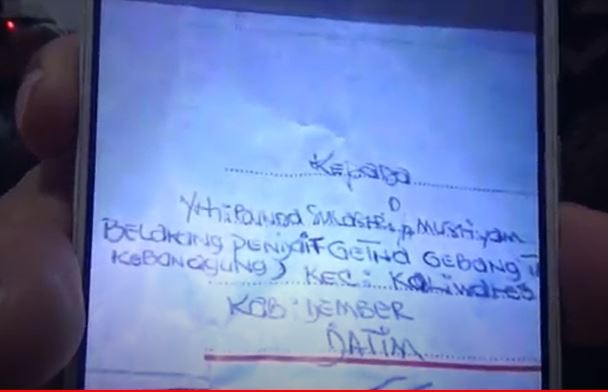 Kepada
Yth: Ibunda Sulastri, p Mustiyam
BELAKANG PENJAIT GEIND GEBANG
KEBONAGUNG) KEC: KALIWATES
KAB: JEMBER
JATIM